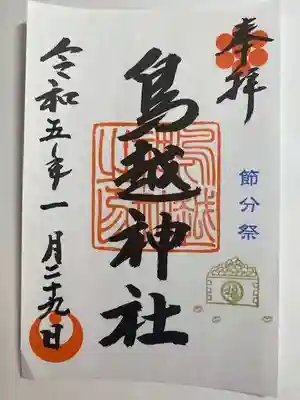 奉拝
節分祭
鳥越神社
令和五年一月二十九日